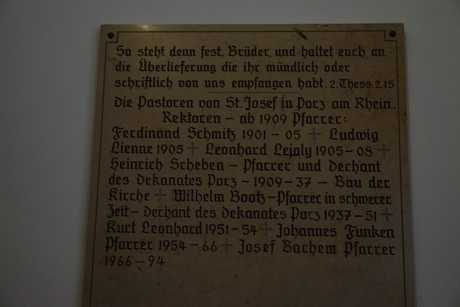 So steht denn fest, Brüder, und haltet euch an
die Überlieferung die ihr mündlich oder
schriftlich von uns empfangen habt. 2. Thess. 2.15
Die Pastoren von St. Josef in Porz am Rhein.
Rektoren - ab 1909 Pfarrer:
Ferdinand Schmitz 1901 - 05 + Ludwig
Lienne 1905 + Leonhard Lejaly 1905 - 08 +
Heinrich Scheben - Pfarrer und Dechant
des Dekanates Porz - 1909 - 37 - Bau der
Kirche + Wilhelm Bootz - Pfarrer in schwerer
Zeit - Dechant des Dekanates Porz 1937 - 51 +
Kurt Leonhard 1951 - 54 + Johannes Funken
Pfarrer 1954 - 66 + Josef Bachem Pfarrer
1966 - 94